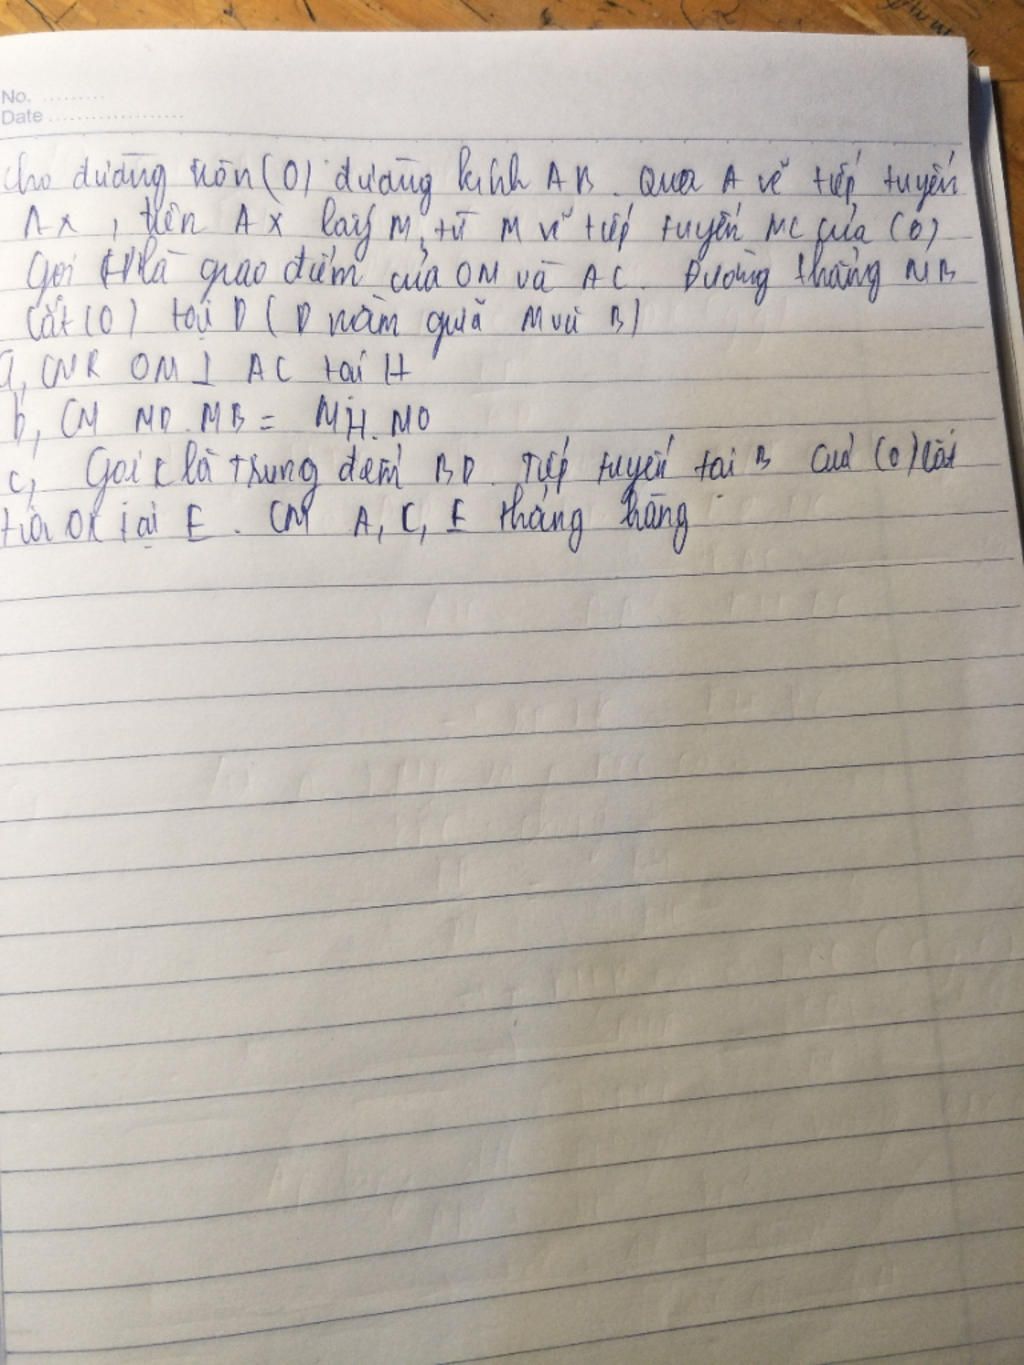 No. .........
Date ...................
Cho đường tròn (O) đường kính AB. Qua A vẽ tiếp tuyến
Ax, trên Ax lấy M, từ M vẽ tiếp tuyến MC của (O)
Gọi H là giao điểm của OM và AC. Đường thẳng MB
cắt (O) tại D (D nằm giữa M và B)
a, CMR OM ⊥ AC tại H
b, CM MD.MB = MH.MO
c, Gọi K là trung điểm BD. Tiếp tuyến tại B của (O) cắt
tia OK tại E. CM A, C, E thẳng hàng